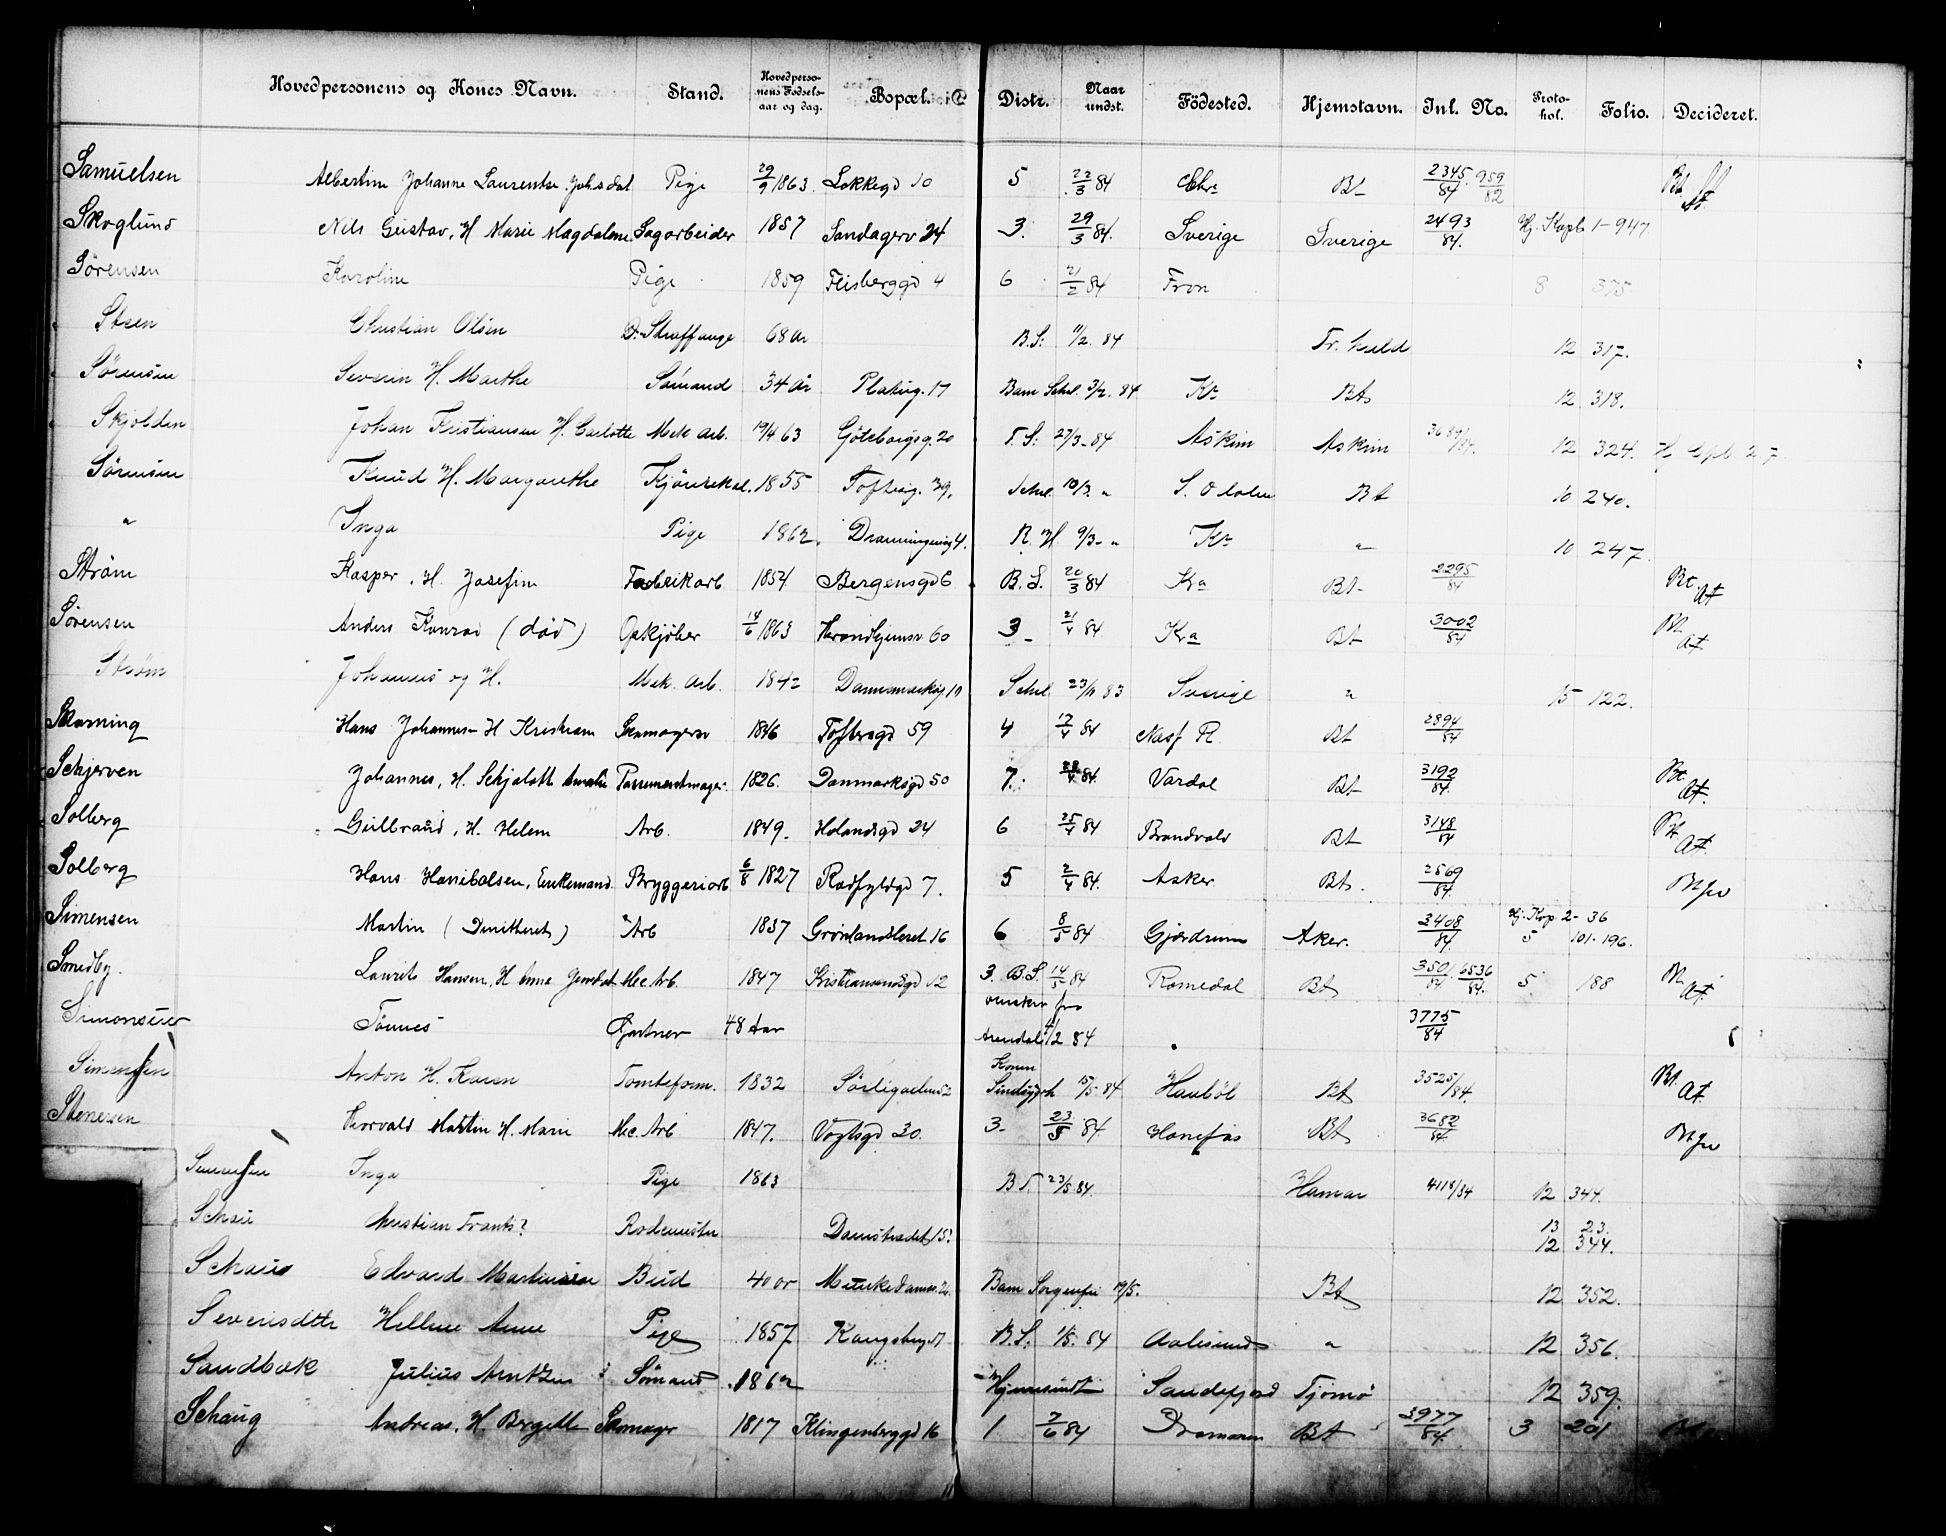 Hovedpersonens og Kones Navn. Stand. Hovedpersonens Fødselsaar og dag. Bopæl. Distr. Naar undst. Födested. Hjemstavn. Inl. No. Protokol. Folio. Decideret.
Samuelsen Albertine Johanne Laurentse Johsdat Pige 29/9 1863 Løkkegd 10 5 22/3 84 Chr Bt 2345/84 959/82 Bt
Skoglund Nils Gustav, H Marie Magdalene Sagarbeider 1857 Sandagerv 24 3. 29/3 84. Sverige Sverige 2493/84. Hj. Kopb 1-947
Sørensen Karoline Pige 1859 Feisberggd 4 6 21/2 84 Fron 8 375
Steen Christian Olsen D. Straffange 68 Ar B.S. 11/2. 84 Fr. hald 12 317.
Sørensen Severin H. Marthe Sømand 34 Ar Platug. 17 Bam Schul 3/2. 84 Ka Bt 12 318.
Skjolden Johan Kristiansen H. Carlotte Mek Arb. 19/4 63 Göteborgsg. 20 T.S. 27/3-84 Askim Askim 3689/84. 12 324.
Sørensen Knud H. Margarethe Kjörsekal. 1855 Toftesg. 39, Schul 10/3. " Bt 10 240.
" Inga Pige 1862. Dronningensg 4. R.H 9/3- " Ka " 10 247
Strøm Kasper, H. Josefine Fabrikarb 1854 Bergensgd 6 B.S. 20/3 84 Kra Bt 2295/84 Bt. At
Sørensen Anders Konrad (død) Opkjøber 14/6 1863 Trondhjemsv 60 3 21/4 84 Kra Bt 3002/84 Bt At
Strøm Johannes og H. Mek. Arb. 1842 Dannemarksg 19 Schul 23/11 83 Sverige " 15 122.
Skorning Hans Johannes- H Kristiane Skomagersv 1846 Toftesgd 59 4 17/4 84 Næs R. Bt 2894/84
Schjerven Johannes, H. Schjalott Amalie Possementmager 1826. Danmarksgd 50 7. 28/4 84. Vardal Bt 3192/84. Bt. At.
Solberg Gulbrand, H. Helene Arb. 1849. Holandsgd 24 6 25/4 84 Brandvold Bt 3148/84 Bt At.
Solberg Hans Hanibalsen, Enkemand Bryggeriarb 6/8 1827 Rødfyldgd 7. 5 2/4 84. Asker Bt. 2569/84.
Simensen Martin (Dmittert) Arb 1837 Grønlandsleret 16 6 8/5 84 Gjerdrum Aker. 3408/84. Hj. Kop 2-36 5 101-196.
Smedby. Laurits Hansen, H Anne Jensdat Mec Arb. 1847 Kristianandsgd 12 3. B.S. 14/5 84 Romedal Bt 3501/84 6536/84. 5 188 Bt At.
Simonsen Tönnes Gartner 48 Aar ønsker fra Arendal 4/2 84 3775/84
Simensen Anton H. Karen Tomteform. 1832 Konen Sindssygeh 15/5. 84 Haubøl Bt 3525/84. Bt. At
Stenersen Thorvald Martin H. Marie Mec. Arb 1847. Vogtsgd 30. 3. 23/5 84. Hønefos Bt 3682/84.
Simensen Inga Pige 1863 B.S. 23/5 84. Hamar 4118/84 12 344.
Schau Christian Frantz? Rodemester Damstrædet 15. 13 23. 12 344.
Schau Edvard Martinsen Bud 40 Ar Munkedamsv. Bam Sorgenfri 19/5. Bt 12 352.
Severisdtr Helline Anne Pige 1857 Kongsbergd B.S. 1/5. 84 Aalesund " 12 356.
Sandbæk Julius Arntzen Sømand 1862 Hjemsendt Sandefjord Tjømø 12 359.
Schaug Andreas, H. Bergette Skomager 1817 Klingenberggd 16 1 7/6 84 Drammen Bt 3977/84. 3 201